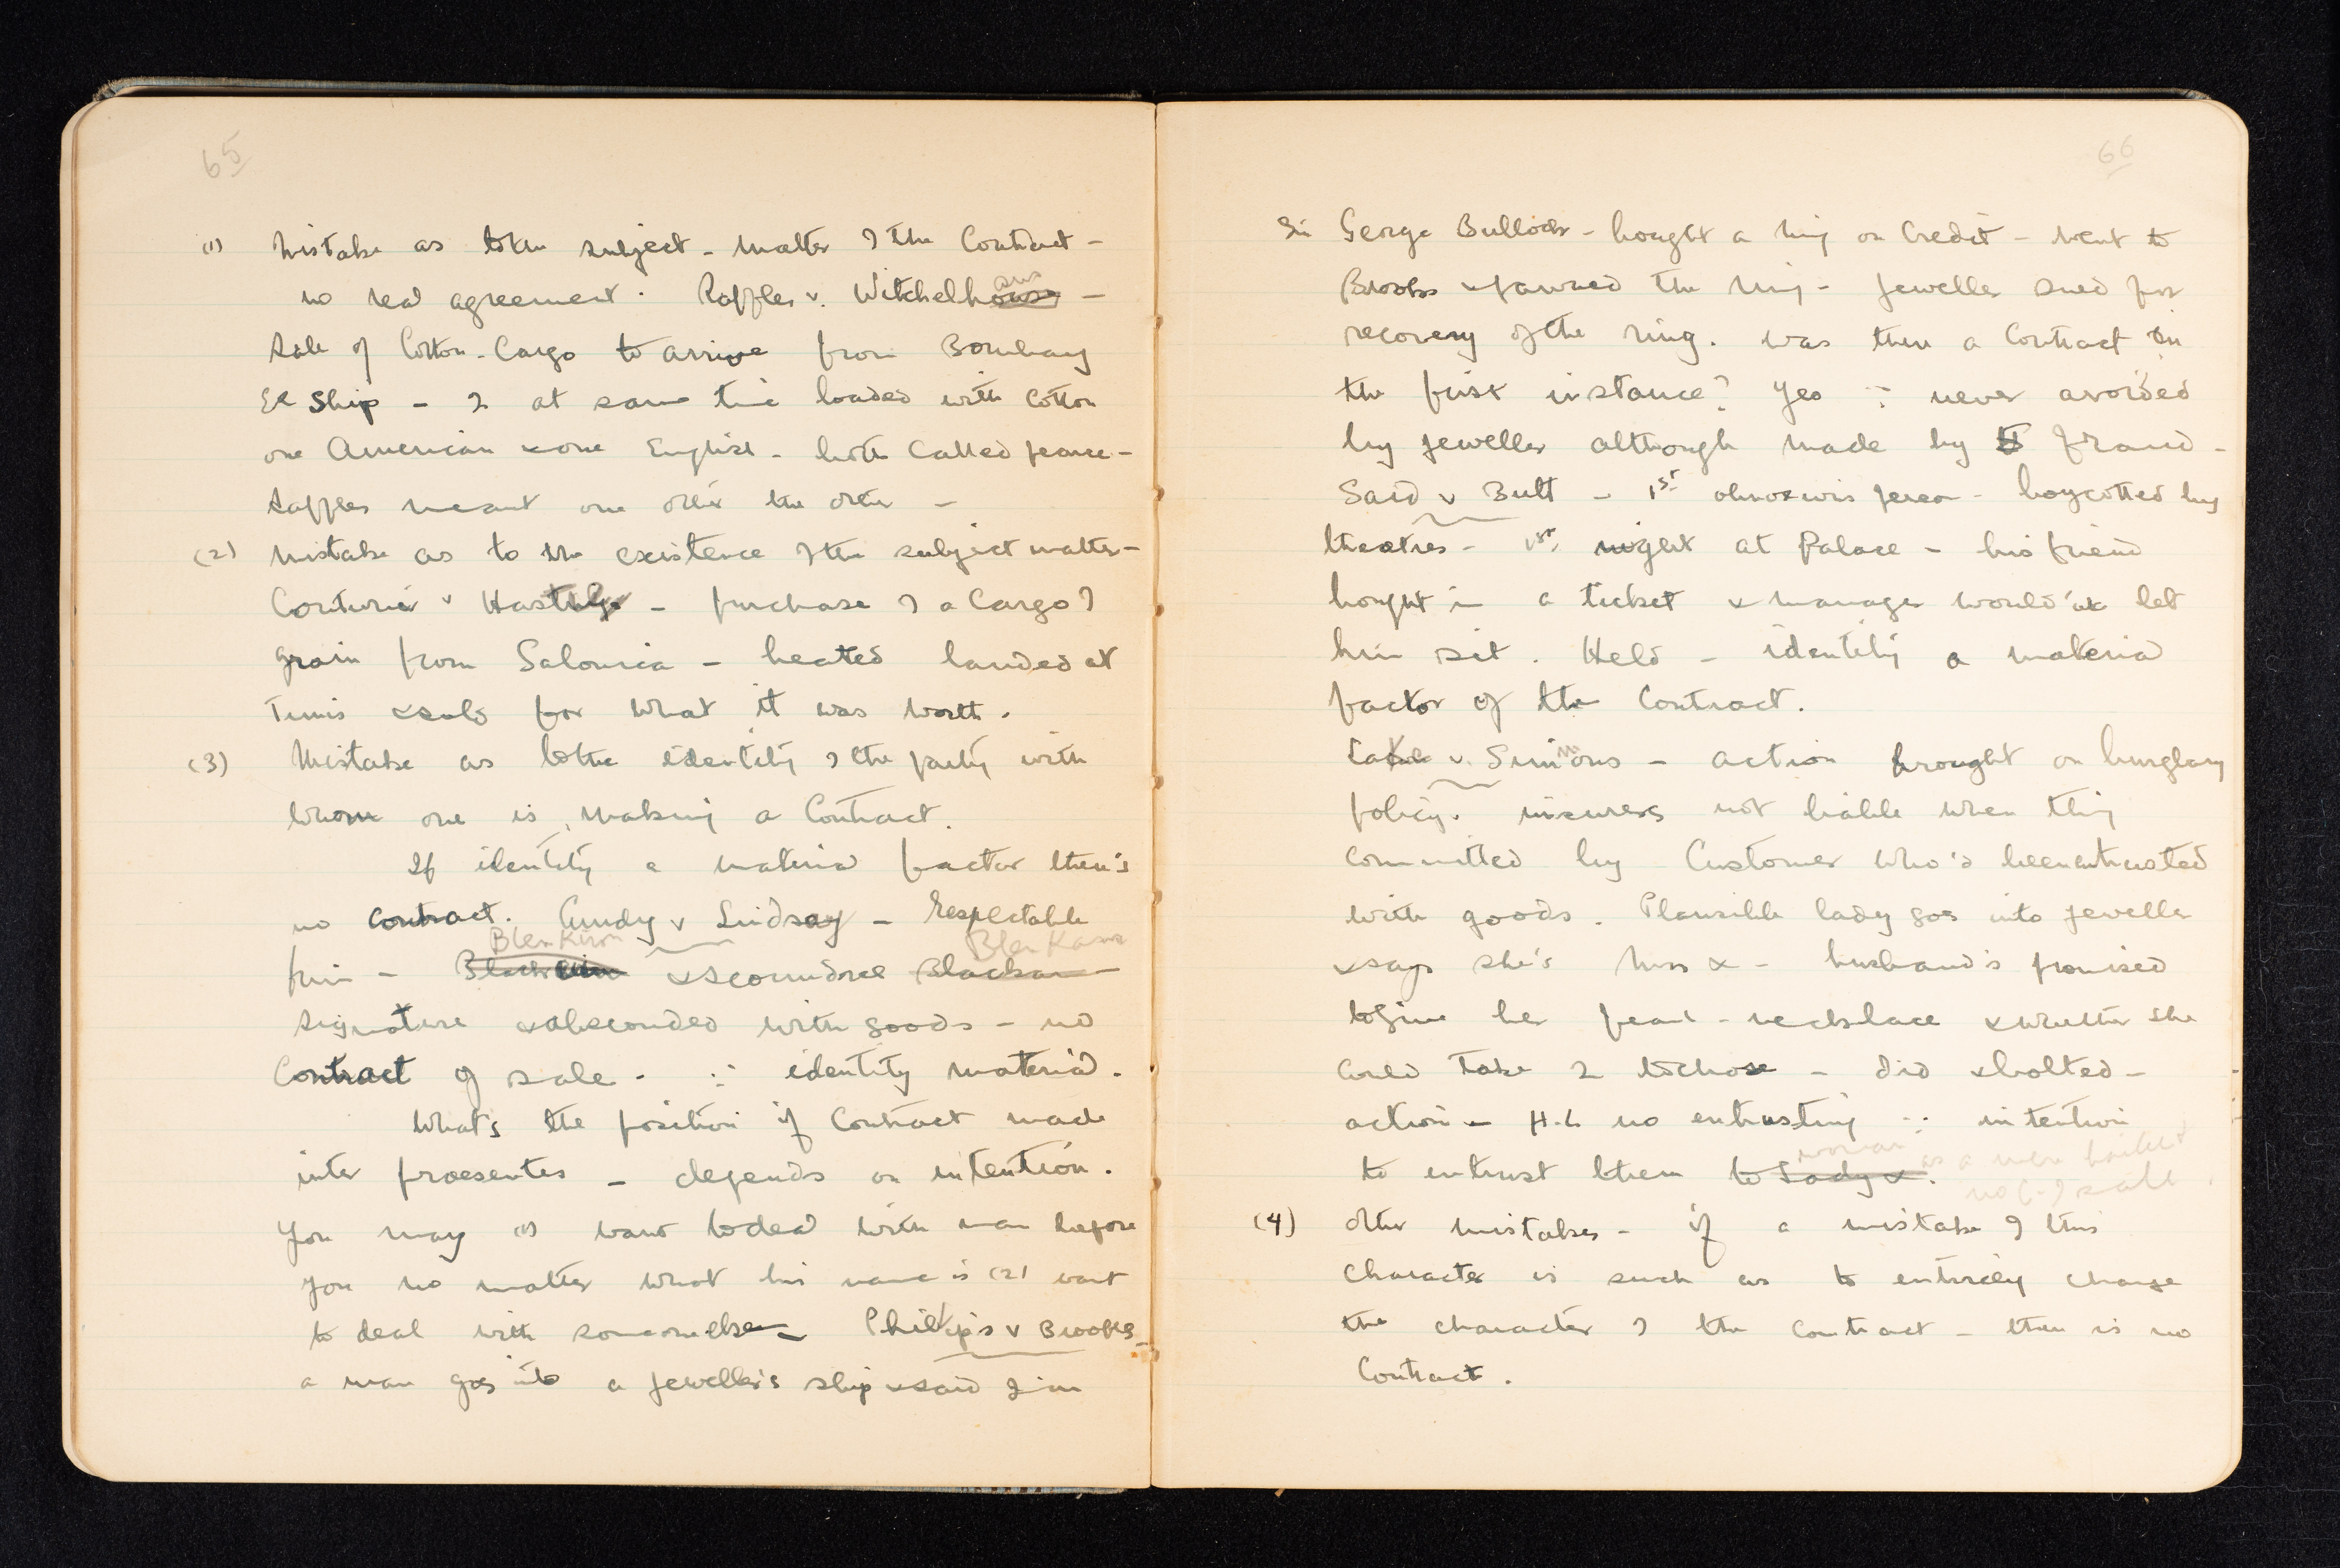 65
(1) Mistake as to the subject-matter of the Contract -
no real agreement. Raffles v. Witchelhaus -
Sale of Cotton-Cargo to arrive from Bombay
Ex Ship - 2 at same time loaded with Cotton
one American & one English - both Called Pearce -
Raffles meant one other the other -
(2) Mistake as to the existence of the subject matter -
Couturier v Hastie - purchase of a Cargo of
grain from Salonica - heated landed at
Tunis & sold for what it was worth.
(3) Mistake as to the identity of the party with
whom one is making a Contract.
If identity a material factor there's
no contract. Cundy v Lindsay - Respectable
Blenkiron Blenkarn
firm - & scoundrel
signature & absconded with goods - no
Contract of sale - ∵ identity material.
What's the position if Contract made
inter praesentes - depends on intention.
You may (1) want to deal with man before
you no matter what his name is (2) want
to deal with someone else - Phillips v Brooks -
a man goes into a jeweller's shop & said I'm
66
Sir George Bullock - bought a ring on Credit - went to
Brooks & pawned the ring - jeweller sued for
recovery of the ring. Was there a Contract in
the first instance? Yes ∵ never avoided
by jeweller although made by fraud -
Said v Butt - 1st obnoxious person - boycotted by
theatres - 1st night at Palace - his friend
bought in a ticket & manager would'nt let
him sit. Held - identity a material
factor of the Contract.
Lake v. Simmons - action brought on burglary
policy. insurers not liable when thing
committed by Customer who's been entrusted
with goods. Plausible lady goes into jeweller
& says she's Mrs X - husband's promised
to give her pearl-necklace & whether she
could take 2 to chose - did & bolted -
action - H.L no entrusting ∵ intention
woman as a mere
to entrust them to Lady X.
no of sale
(4) Other mistakes - if a mistake of this
character is such as to entirely change
the character of the contract - then is no
Contract.